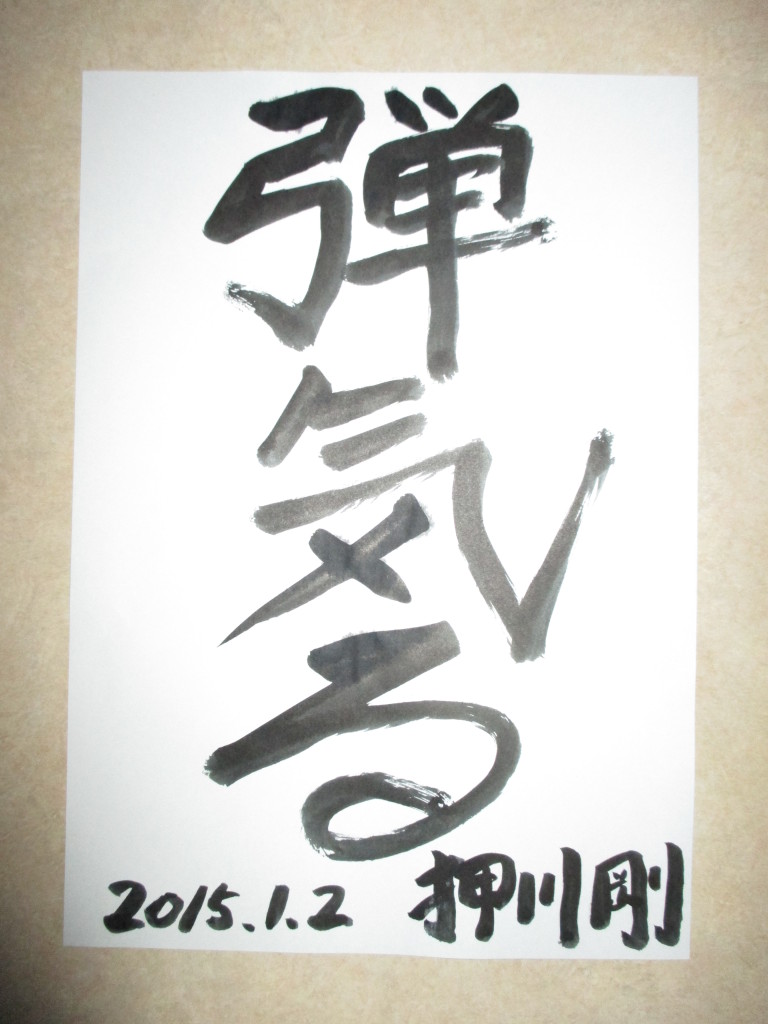 弾気る
2015.1.2 押川剛